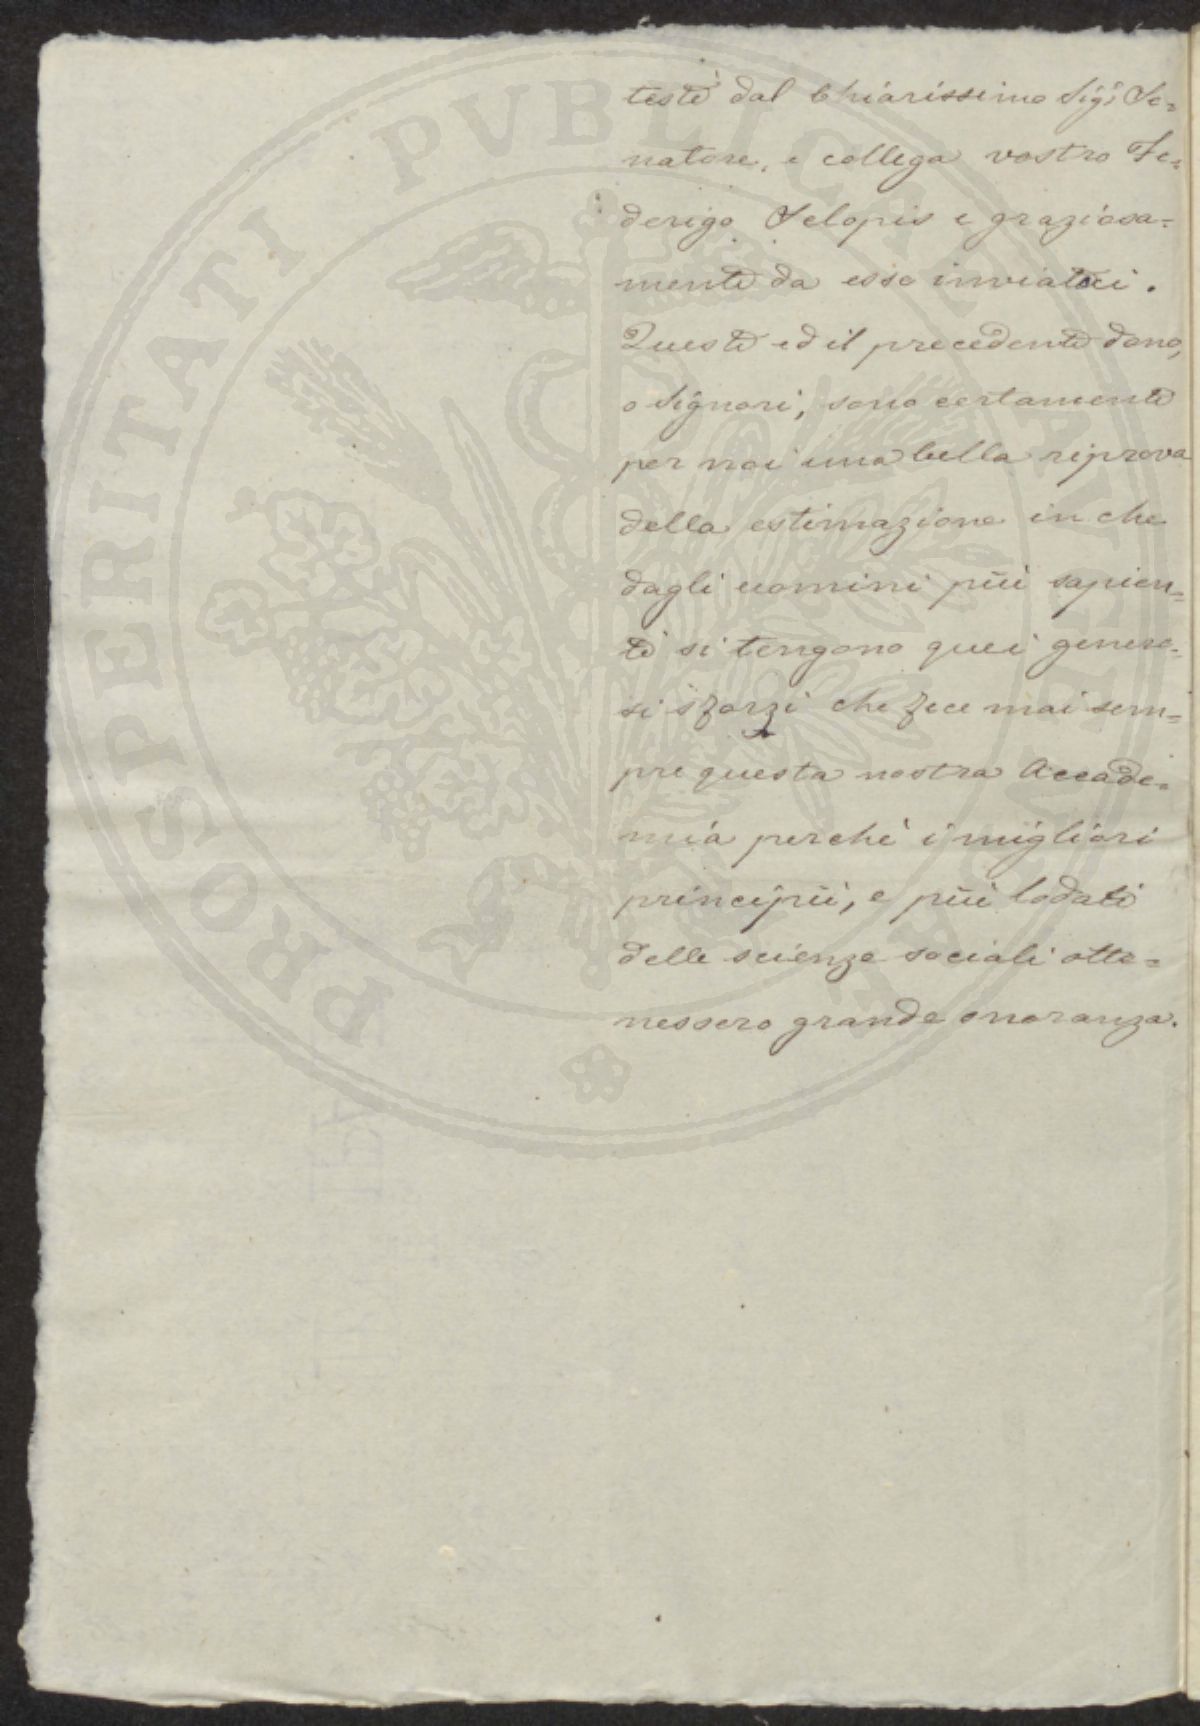 testè dal Chiarissimo Sig.r Se=
natore, e collega vostro Fe=
derigo Sclopis e graziosa=
mente da esso inviatoci.
Questo ed il precedente dono,
o Signori, sono certamente
per noi una bella riprova
della estimazione in che
dagli uomini più sapien=
ti si tengono quei genero=
si sforzi che fece mai sem=
pre questa nostra Accade=
mia perchè i migliori
principii, e più lodati
delle scienze sociali otte=
nessero grande onoranza.
PROSPERITATI PVBLICAE AVGENDAE